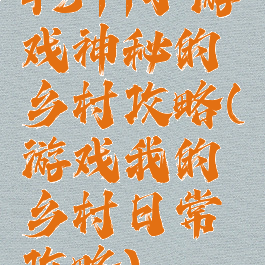 游
戏神秘的
乡村攻略(
游戏我的
乡村日常
攻略)